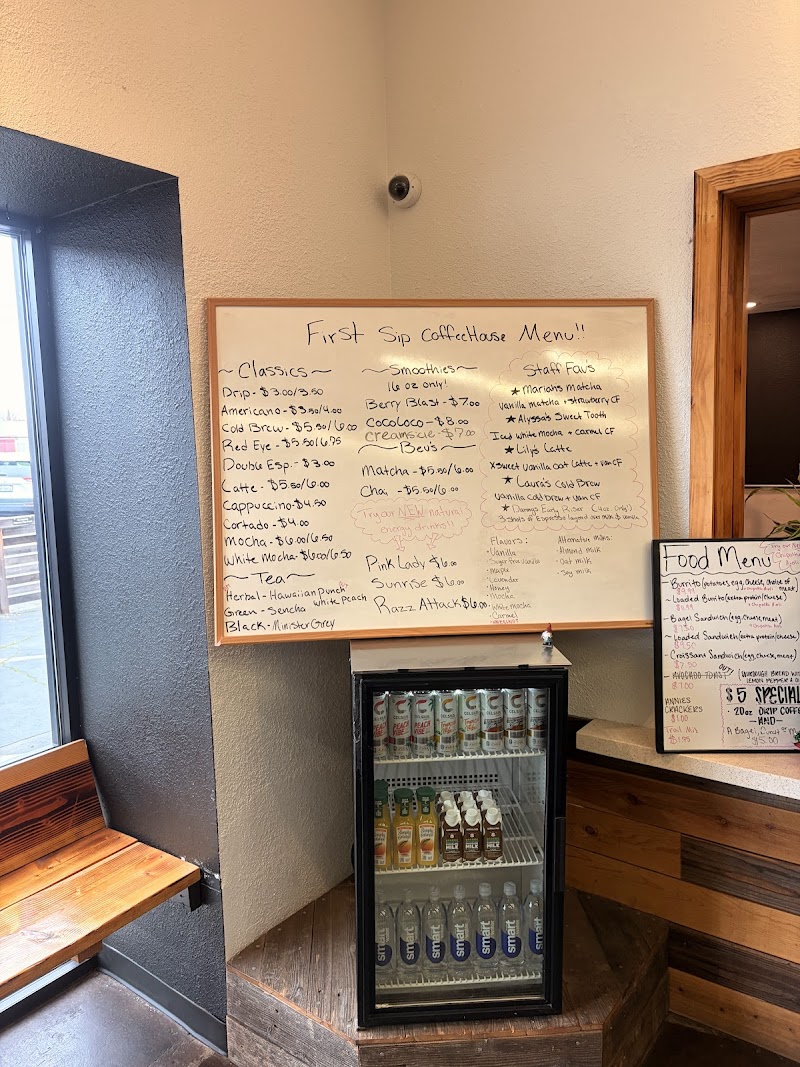 First Sip CoffeeHouse Menu!!
~Classics~
Drip - $3.00/3.50
Americano - $3.50/4.00
Cold Brew - $5.50/6.00
Red Eye - $5.50/6.75
Double Esp. - $3.00
Latte - $5.50/6.00
Cappuccino - $4.50
Cortado - $4.00
Mocha - $6.00/6.50
White Mocha - $6.00/6.50
~Tea~
Herbal - Hawaiian Punch
white Peach
Green - Sencha
Black - Minister Grey
~Smoothies~
16 oz only!
Berry Blast - $7.00
Cocoloco - $8.00
creamsicle - $7.00
~Bev's~
Matcha - $5.50/6.00
Chai - $5.50/6.00
Try our NEW natural
energy drinks!!
Pink Lady $6.00
Sunrise $6.00
Razz Attack $6.00
Staff Fav's
★ Mariahs Matcha
Vanilla matcha + strawberry CF
★ Alyssa's Sweet Tooth
Iced white mocha + carmel CF
★ Lily's Latte
xsweet vanilla oat Latte + van CF
★ Laura's Cold Brew
vanilla cold brew + van CF
★ Danny's Early Riser (4oz. Only)
3 shots of Espresso layered over milk & vanilla
Flavors:
· Vanilla
· Sugar free vanilla
· Maple
· Lavender
· Honey
· Mocha
· White mocha
· Carmel
Alternative Milks:
· Almond milk
· Oat milk
· Soy milk
Food Menu
~ Burrito (potatoes, egg, cheese, choice of meat)
~ Loaded Burrito (extra protein/cheese)
~ Bagel Sandwich (egg, cheese, meat)
~ Loaded Sandwich (extra protein/cheese)
~ Croissant Sandwich (egg, cheese, meat)
$7.50
~ AVOCADO TOAST
OUT!
$7.00
ANNIES
CRACKERS
$1.00
Trail Mix
$1.95
$5 SPECIAL
· 20oz DRIP COFF
-AND-
$5.00
CELSIUS
PEACH VIBE
CELSIUS
simply
orange
MILK
smart
smart
smart
smart
smart
smart
smart